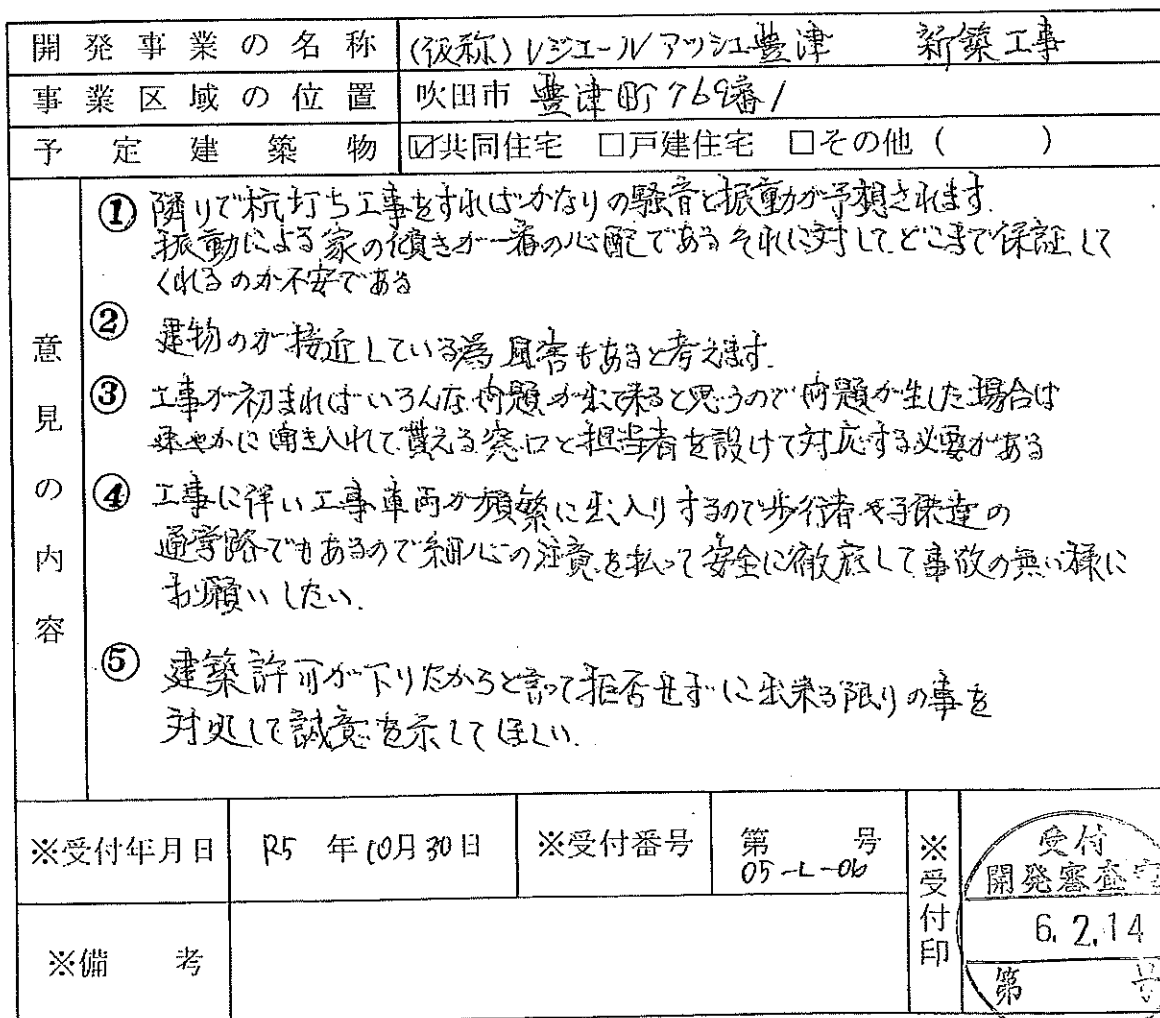 開発事業の名称 (仮称)レジエールアッシュ豊津 新築工事
事業区域の位置 吹田市 豊津町769番1
予定建築物 ☑共同住宅 □戸建住宅 □その他 ( )
意見の内容
① 隣りで杭打ち工事をすればかなりの騒音と振動が予想されます.
振動による家の傾きが一番の心配である それに対して どこまで保証して
くれるのか不安である
② 建物のが接近している為 風害もあると考えます.
③ 工事が初まればいろんな問題が出て来ると思うので問題が生した場合は
速やかに聞き入れて貰える窓口と担当者を設けて対応する必要がある
④ 工事に伴い工事車両が頻繁に出入りするので歩行者や子供達の
通学路でもあるので細心の注意を払って安全に徹底して事故の無い様に
お願いしたい.
⑤ 建築許可が下りたからと言って拒否せずに出来る限りの事を
対処して誠意を示してほしい.
※受付年月日 R5 年10月30日 ※受付番号 第 号
05-L-06
※受付印
受付
開発審査室
6.2.14
第 号
※備考